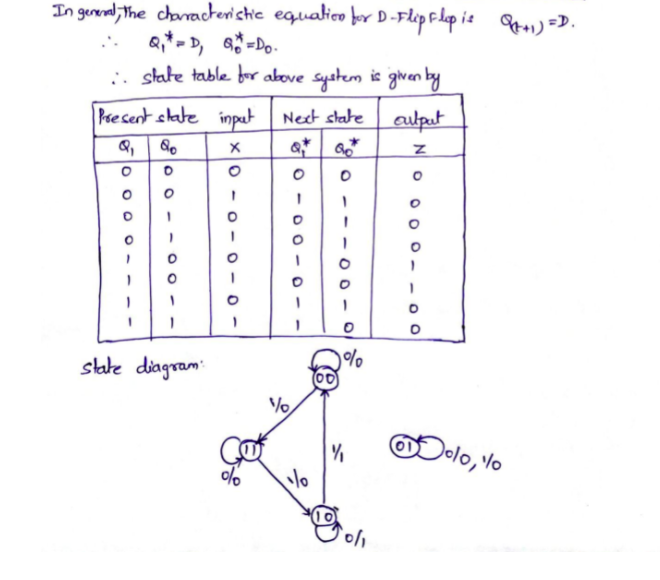 In general, the characteristic equation for D-Flip Flop is Q(t+1) = D.
∴ Q₁* = D, Q₀* = D₀.
∴ state table for above system is given by
Present state input Next state output
Q₁ Q₀ x Q₁* Q₀* z
0 0 0 0 0 0
0 0 1 1 1 0
0 1 0 0 1 0
0 1 1 0 1 0
1 0 0 1 0 1
1 0 1 0 0 1
1 1 0 1 1 0
1 1 1 1 0 0
state diagram:
0/0
00
1/0
11
0/0
1/1
01
0/0, 1/0
1/0
10
0/1